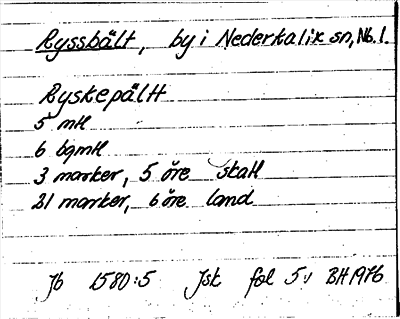 Ryssbält, by i Nederkalix sn, Nb. l.
Ryskepällt
5 mtl
6 bgmtl
3 marker, 5 öre skatt
21 marker, 6 öre land
Jb 1580:5 Jsk fol 5v BH 1976